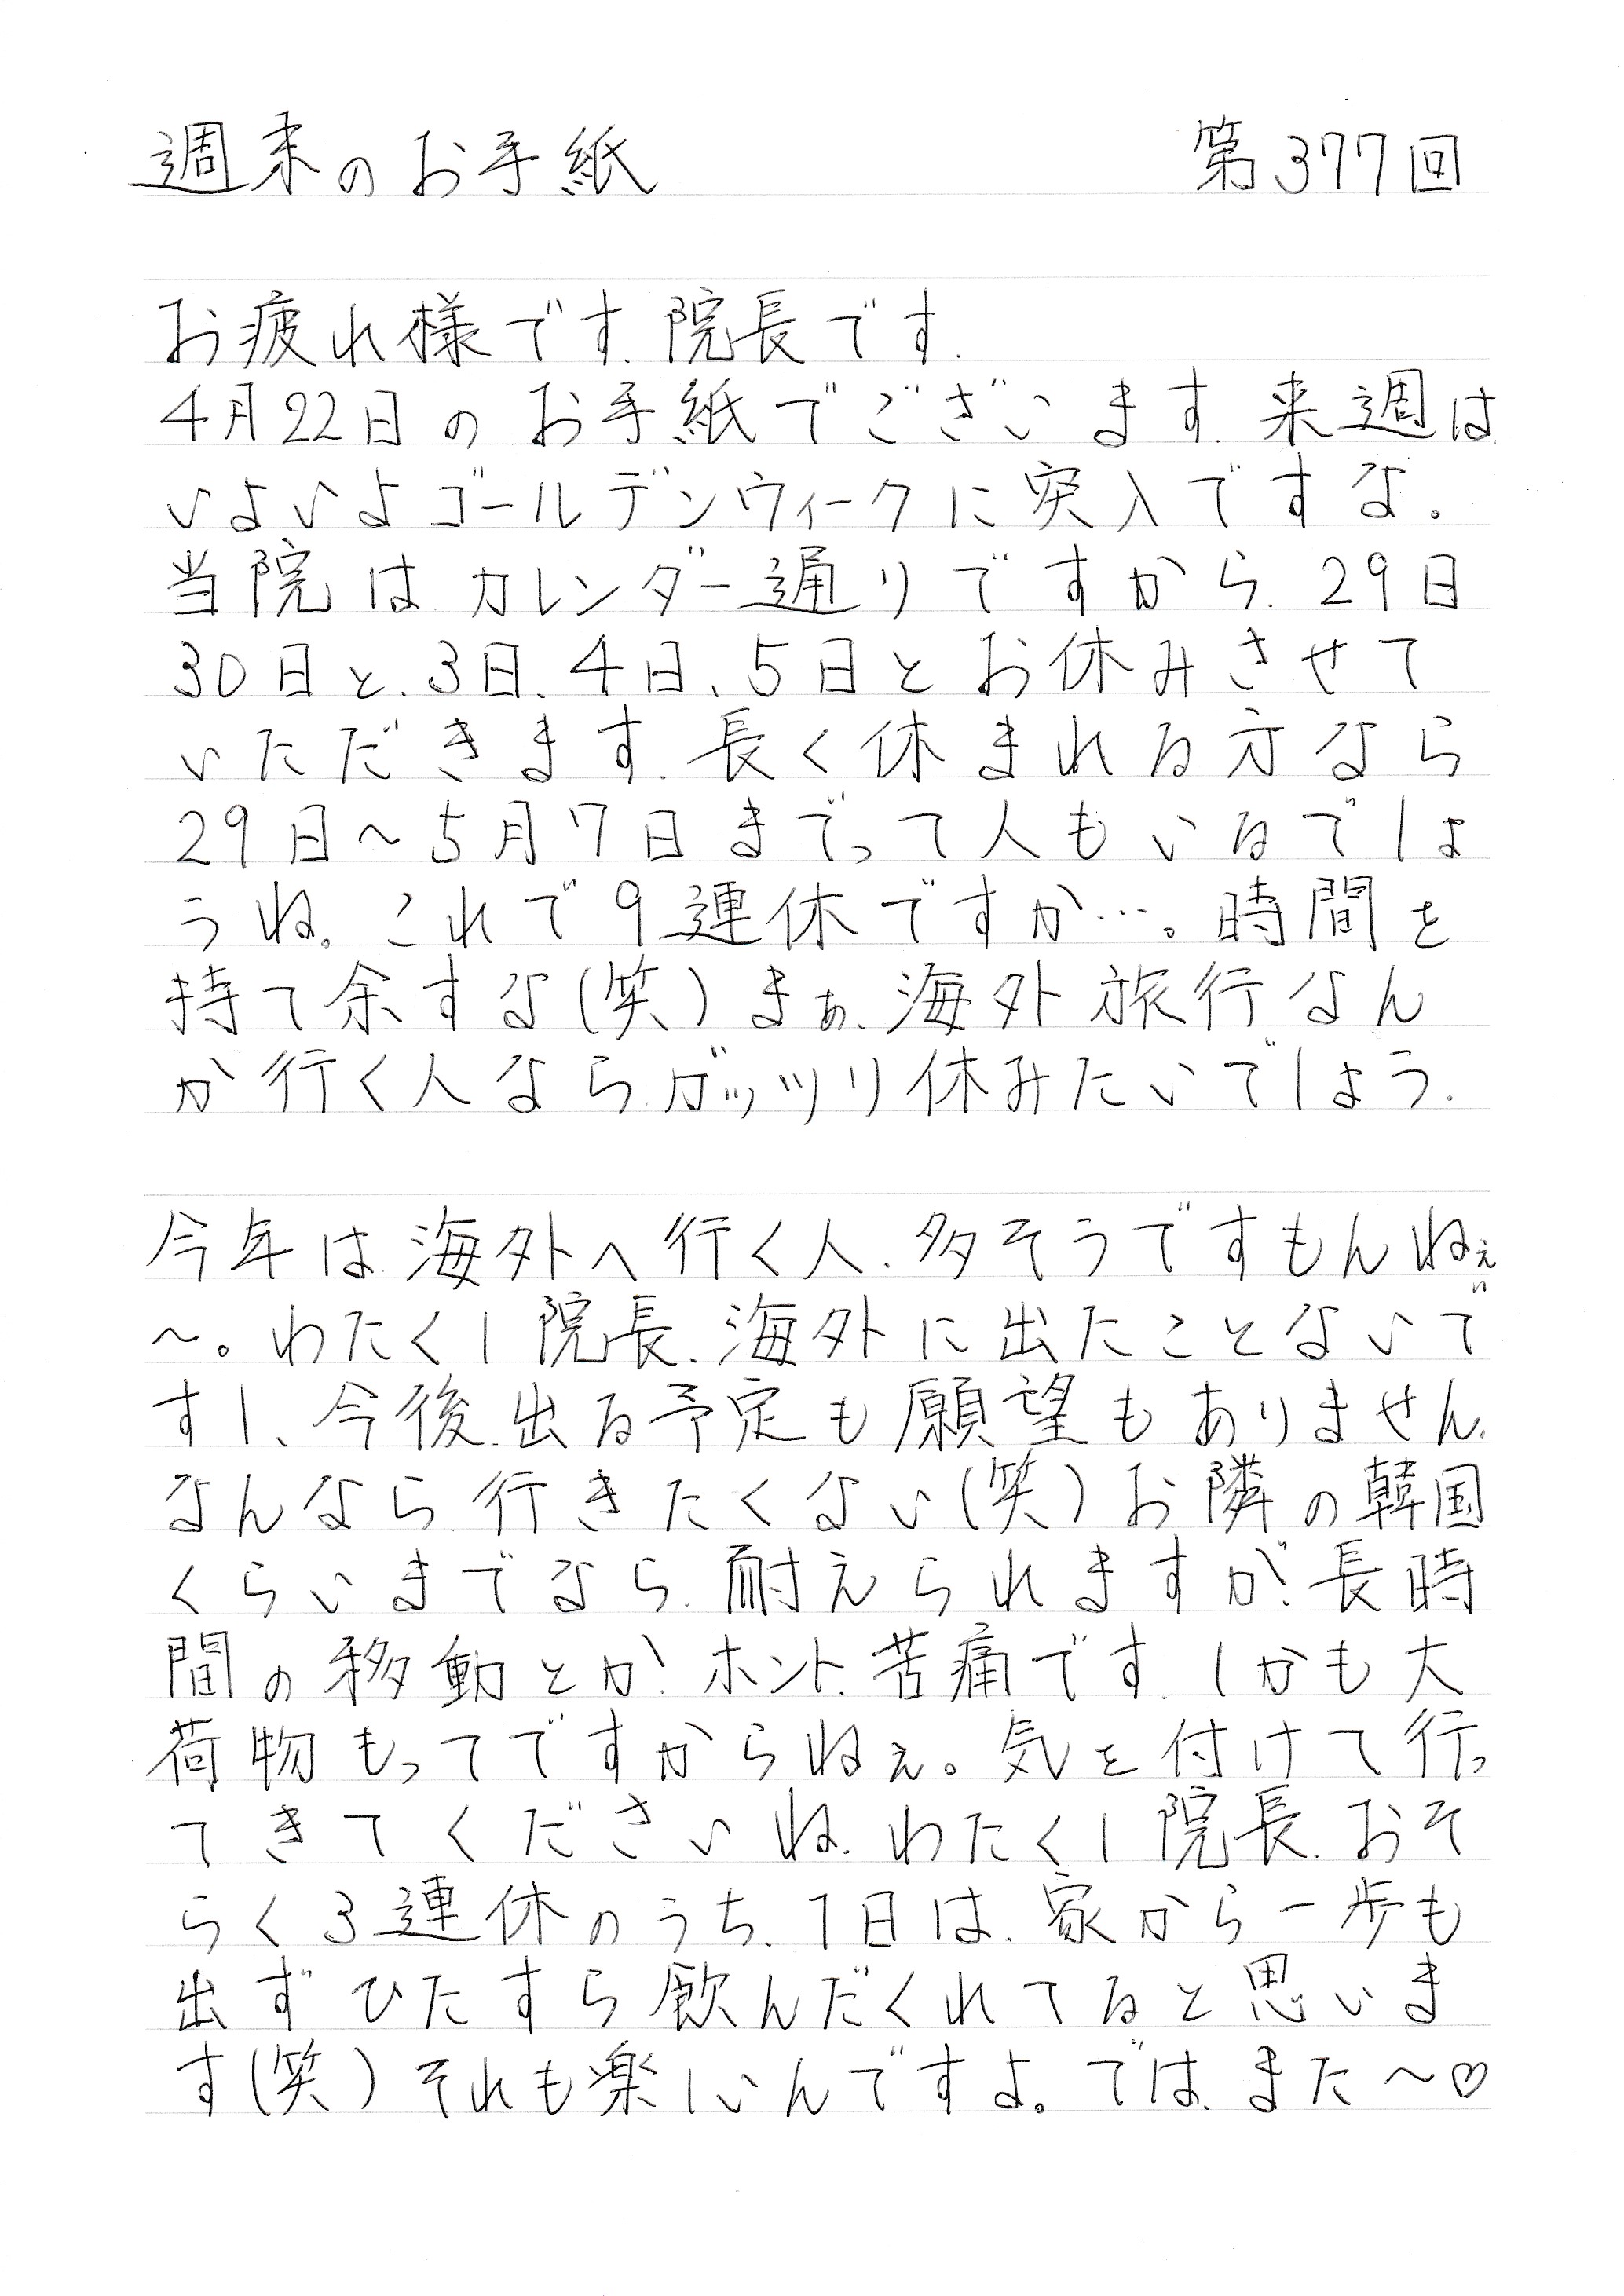 週末のお手紙 第377回
お疲れ様です、院長です。
4月22日のお手紙でございます。来週は、
いよいよゴールデンウィークに突入ですな。
当院は、カレンダー通りですから、29日
30日と、3日、4日、5日とお休みさせて
いただきます。長く休まれる方なら
29日〜5月7日までって人もいるでしょ
うね。これで9連休ですか…。時間を
持て余すな(笑)まぁ、海外旅行なん
か行く人なら、ガッツリ休みたいでしょう。
今年は、海外へ行く人、多そうですもんねぇ
〜。わたくし院長、海外に出たことないで
すし、今後、出る予定も願望もありません。
なんなら、行きたくない(笑)お隣の韓国
くらいまでなら、耐えられますが、長時
間の移動とか、ホント、苦痛です。しかも大
荷物もってですからねぇ。気を付けて行っ
てきてくださいね。わたくし院長、おそ
らく3連休のうち、1日は、家から一歩も
出ずひたすら飲んだくれてると思いま
す(笑)それも楽しいんですよ。では、また〜♡